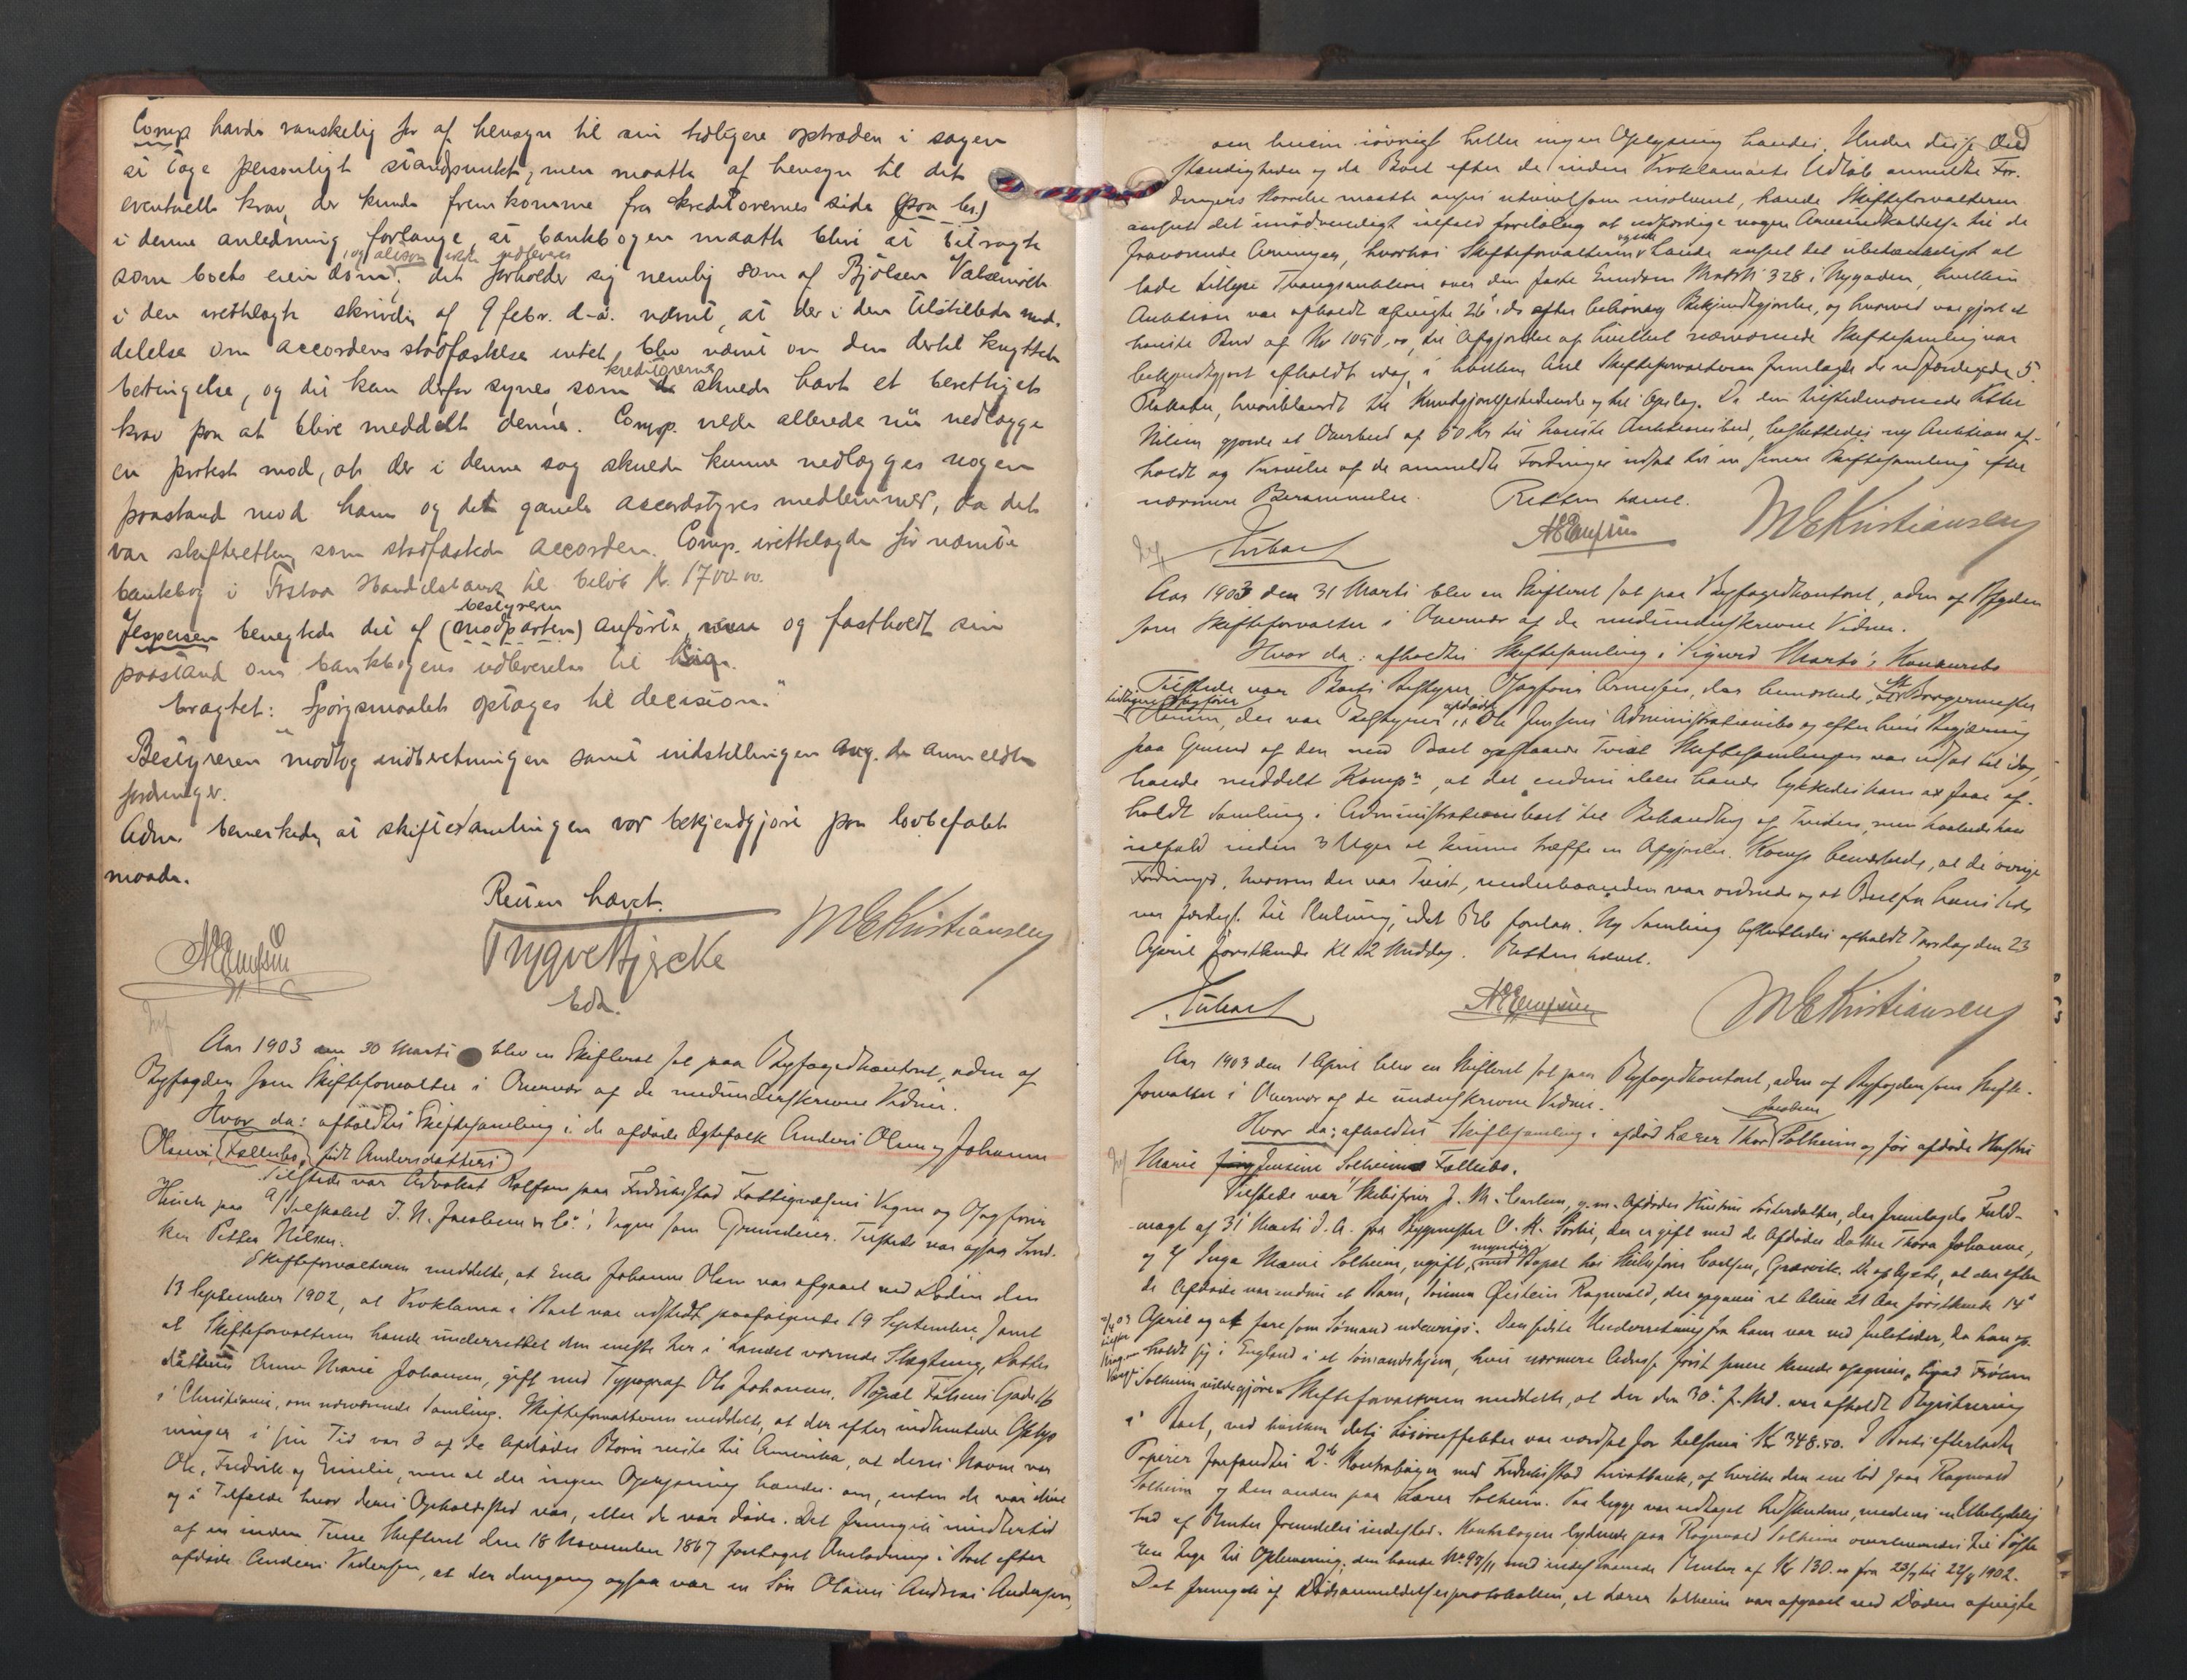 Comp. havde vanskelig for af hensyn til sin tidligere optræden i sagen
at tage personligt standpunkt, men maatte af hensyn til det
eventuelle krav, der kunde fremkomme fra kreditorernes side (pro les.)
i denne anledning forlange, at bankbogen maatte blive at betragte
som boets eiendom, og altsaa ikke udleveres; det forholder sig nemlig som af Bjölsen Valsemölle
i den irettelagte skrivelse af 9 febr. d.a. nævnt, at der i den tilstillede med-
delelse om accordens stadfæstelse intet blev nævnt om den dertil knyttede
betingelse, og det kan derfor synes som kreditorerne skulde havt et berettiget
krav paa at blive meddelt denne. Comp. vilde allerede nu nedlægge
en protest mod, at der i denne sag skulde kunne nedlægges nogen
paastand mod ham og det gamle accordstyres medlemmer, da det
var skifteretten, som stadfæstede accorden. Comp. irettelagde før nævnte
bankbog i Fr.stad Handelsbank til beløb Kr. 1700.00.
Jespersen benegtede det af bestyreren (modparten) anførte og fastholdt sin
paastand om bankbogens udleverelse til
bragtet: Spörgsmaalet optages til decision."
Bestyreren modtog indberetningen samt indstillingen ang. de anmeldte
fordringer.
Adm. bemerkede, at skiftesamlingen var bekjendtgjort paa lovbefalet
maade.
Retten hævet.
Trygve Kjercke
Eda.
M E Kristiansen
Aar 1903 den 30 Marts blev en Skifteret sat paa Byfogedkontoret, adm. af
Byfogden som Skifteforvalter i Overvær af de medunderskrevne Vidner.
Hvor da: afholdtes Skiftesamling i de afdøde Ægtefolk Anders Olsen og Johanne
Olsens, Fællesbo, født Andersdatters
Tilstede var Advokat Rolfsen paa Fredrikstad Fattigvæsens Vegne og Sagfører
Hiorth paa A/Selskabet J. N. Jacobsen & Co.'s Vegne som Grundeier. Tilstede var ogsaa Sned-
ker Petter Nilsen.
Skifteforvalteren meddelte, at Enke Johanne Olsen var afgaaet ved Døden den
13 September 1902, at Proklama i Boet var udstedt paafølgende 19 September, samt
at Skifteforvalteren havde underrettet den eneste her i Landet værende Slægtning, Datter-
datteren Anna Marie Johansen, gift med Typograf Ole Johansen, Bopæl Falsens Gade 16
i Christiania, om nærværende Samling. Skifteforvalteren meddelte, at der efter indhentede Oplys-
ninger i sin Tid var 3 af de Afdødes Børn reiste til Amerika, at deres Navne var
Ole, Fredrik og Emilie, men at der ingen Oplysning havdes om, enten de var ilive
og i Tilfælde hvor deres Opholdssted var, eller de var døde. Det fremgik imidlertid
af en inden Tune Skifteret den 18 November 1867 foretaget Omlodning i Boet efter
afdøde Anders Pedersen, at der dengang ogsaa var en Søn Olaus Andreas Andersen,
om hvem iøvrigt heller ingen Oplysning havdes. Under disse Om-
stændigheder og da Boet efter de inden Proklamaets Udløb anmeldte For-
dringers Størrelse maatte ansees utvivlsom insolvent, havde Skifteforvalteren
anseet det unødvendigt ialfald foreløbig at udfærdige nogen Arveindkaldelse til de
fraværende Arvinger, hvorhos Skifteforvalteren ogsaa havde anseet det ubetænkeligt at
lade tillyse Tvangsauktion over den faste Eiendom Matr. N 328 i Nygaden, hvilken
Auktion var afholdt afvigte 26. ds. efter behørig Bekjendtgjørelse, og hvorved var gjort et
høieste Bud af Kr 1050,00, til Afgjørelse af hvilket nærværende Skiftesamling var
bekjendtgjort afholdt idag, i hvilken Anl. Skifteforvalteren fremlagde de udfærdigede 5
Plakater, hvoriblandt til Kundgjørelsestidende og til Opslag. Da den tilstedeværende Petter
Nilsen gjorde et Overbud af 50 Kr til høieste Auktionsbud, besluttedes ny Auktion af-
holdt og Prøvelse af de anmeldte Fordringer udsat til en senere Skiftesamling efter
nærmere Berammelse. Retten hævet.
M E Kristiansen
Aar 1903 den 31 Marts blev en Skifteret sat paa Byfogedkontoret, adm. af Byfogden
som Skifteforvalter i Overvær af de medunderskrevne Vidner.
Hvor da: afholdtes Skiftesamling i Sigurd Martos's Konkursbo
Tilstede var Boets Bestyrer, Sagfører Arnesen, der bemærkede, at Borgermester
tidligere Sagfører der var Bestyrer i afdøde Ole Jensens Administrationsbo og efter hvis Begjæring
paa Grund af den med Boet opstaaede Tvist Skiftesamlingen var udsat til idag,
havde meddelt Kompten, at det endnu ikke havde lykkedes ham at faa af-
holdt Samling i Administrationsboet til Behandling af Tvisten, men haabede han
ialfald inden 3 Uger at kunne træffe en Afgjørelse. Komp. bemærkede, at de øvrige
Fordringer, hvorom der var Tvist, underhaanden var ordnede og at Boet fra hans Side
var færdigt til Slutning, idet Rb. forelaa. Ny Samling besluttedes afholdt Torsdag den 23
April førstkommende Kl 12 Middag. Retten hævet.
M E Kristiansen
Aar 1903 den 1 April blev en Skifteret sat paa Byfogedkontoret, adm. af Byfogden som Skifte-
forvalter i Overvær af de underskrevne Vidner.
Hvor da: afholdtes Skiftesamling i afdød Lærer Thor Jacobsen Solheim og før afdøde Hustru
Marie Jensine Solheims Fællesbo.
Tilstede var Skibsfører J. M. Carlsen, g.m. Afdødes Hustrus Søsterdatter, der fremlagde Fuld-
magt af 31 Marts d.A. fra Bygmester O. K. Sørlie, der er gift med de Afdødes Datter Thora Johanne,
og af Inga Marie Solheim, ugift, myndig, med Bopæl hos Skibsfører Carlsen, Græsvik. De oplyste, at der efter
de Afdøde var endnu et Barn, Sønnen Øistein Ragnvald, der opgaves at blive 21 Aar førstkommende 14de
April og at fare som Sømand udenrigs. Den sidste Underretning fra ham var ved Juletider, da han op-
holdt sig i England i et Sømandshjem, hvis nærmere Adresse først senere kunde opgives, hvad Frøken
Solheim vilde gjøre. Skifteforvalteren meddelte, at der den 30. f. Md. var afholdt Registrering
i Boet, ved hvilken dets Løsøreeffekter var værdsat for tilsammen Kr 348.50. I Boets efterladte
Papirer forfandtes 2de Kontrabøger med Fredrikstad Privatbank, af hvilke den ene lød paa Ragnvald
Solheim og den anden paa Lærer Solheim. Paa begge var udtaget Indskuddene, medens en Ubetydelig-
hed af Renter fremdeles indestod. Kontrabogen lydende paa Ragnvald Solheim overleveredes til
tage til Opbevaring; den havde No 97/11 med Renter af Kr 130.00 fra 1902.
Det fremgik af Dødsanmeldelsesprotokollen, at Lærer Solheim var afgaaet ved Døden afvigte